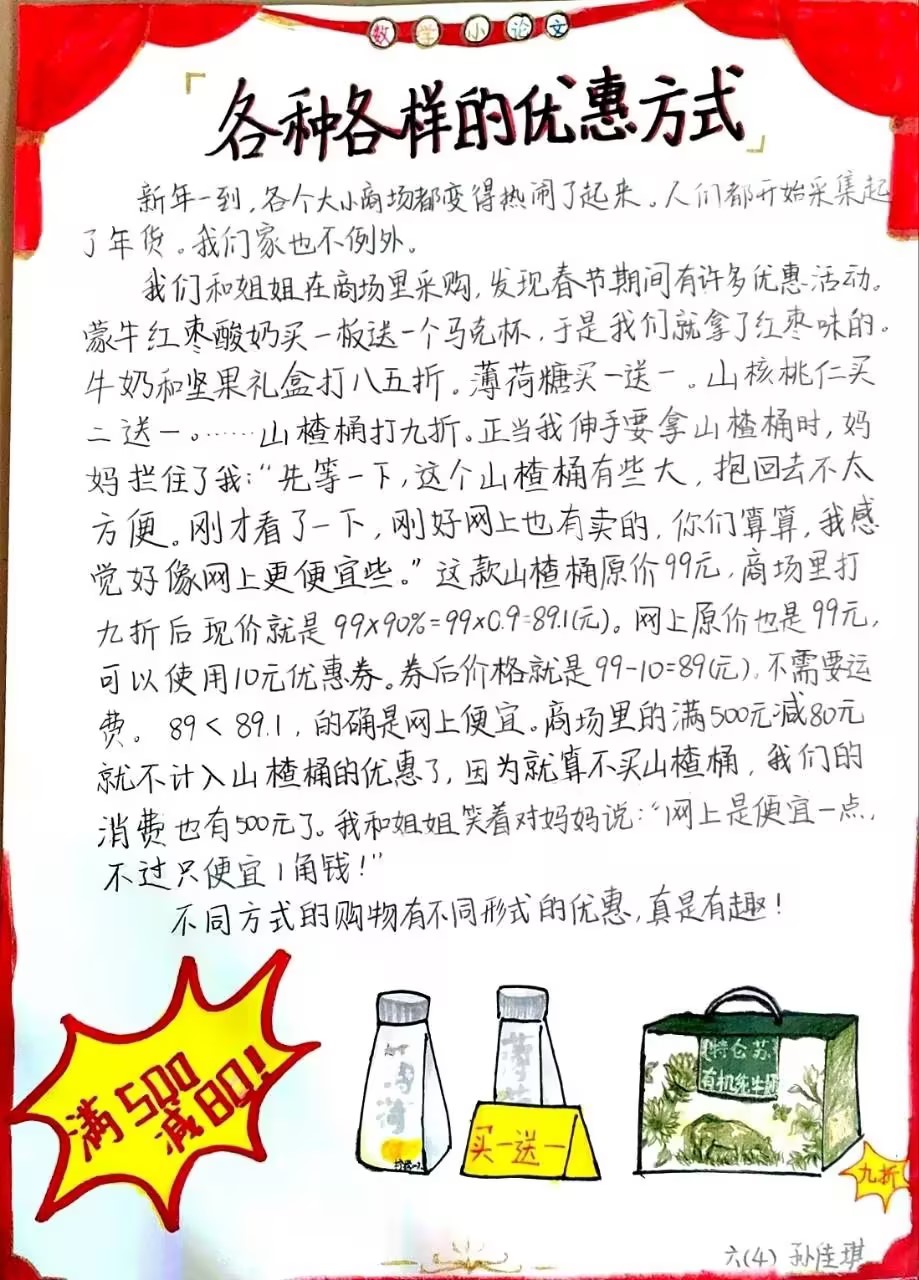 数学小论文
「各种各样的优惠方式」
新年一到，各个大小商场都变得热闹了起来。人们都开始采集起
了年货。我们家也不例外。
我们和姐姐在商场里采购，发现春节期间有许多优惠活动。
蒙牛红枣酸奶买一板送一个马克杯，于是我们就拿了红枣味的。
牛奶和坚果礼盒打八五折。薄荷糖买一送一。山核桃仁买
二送一。……山楂桶打九折。正当我伸手要拿山楂桶时，妈
妈拦住了我：“先等一下，这个山楂桶有些大，抱回去不太
方便。刚才看了一下，刚好网上也有卖的，你们算算，我感
觉好像网上更便宜些。”这款山楂桶原价99元，商场里打
九折后现价就是99×90%=99×0.9=89.1(元)。网上原价也是99元，
可以使用10元优惠券。券后价格就是99-10=89(元)，不需要运
费。89<89.1，的确是网上便宜。商场里的满500元减80元
就不计入山楂桶的优惠了，因为就算不买山楂桶，我们的
消费也有500元了。我和姐姐笑着对妈妈说：“网上是便宜一点，
不过只便宜1角钱！”
不同方式的购物有不同形式的优惠，真是有趣！
满500
减80！
薄荷
薄荷
买一送一
特仑苏
有机纯牛奶
九折
六(4) 孙佳琪